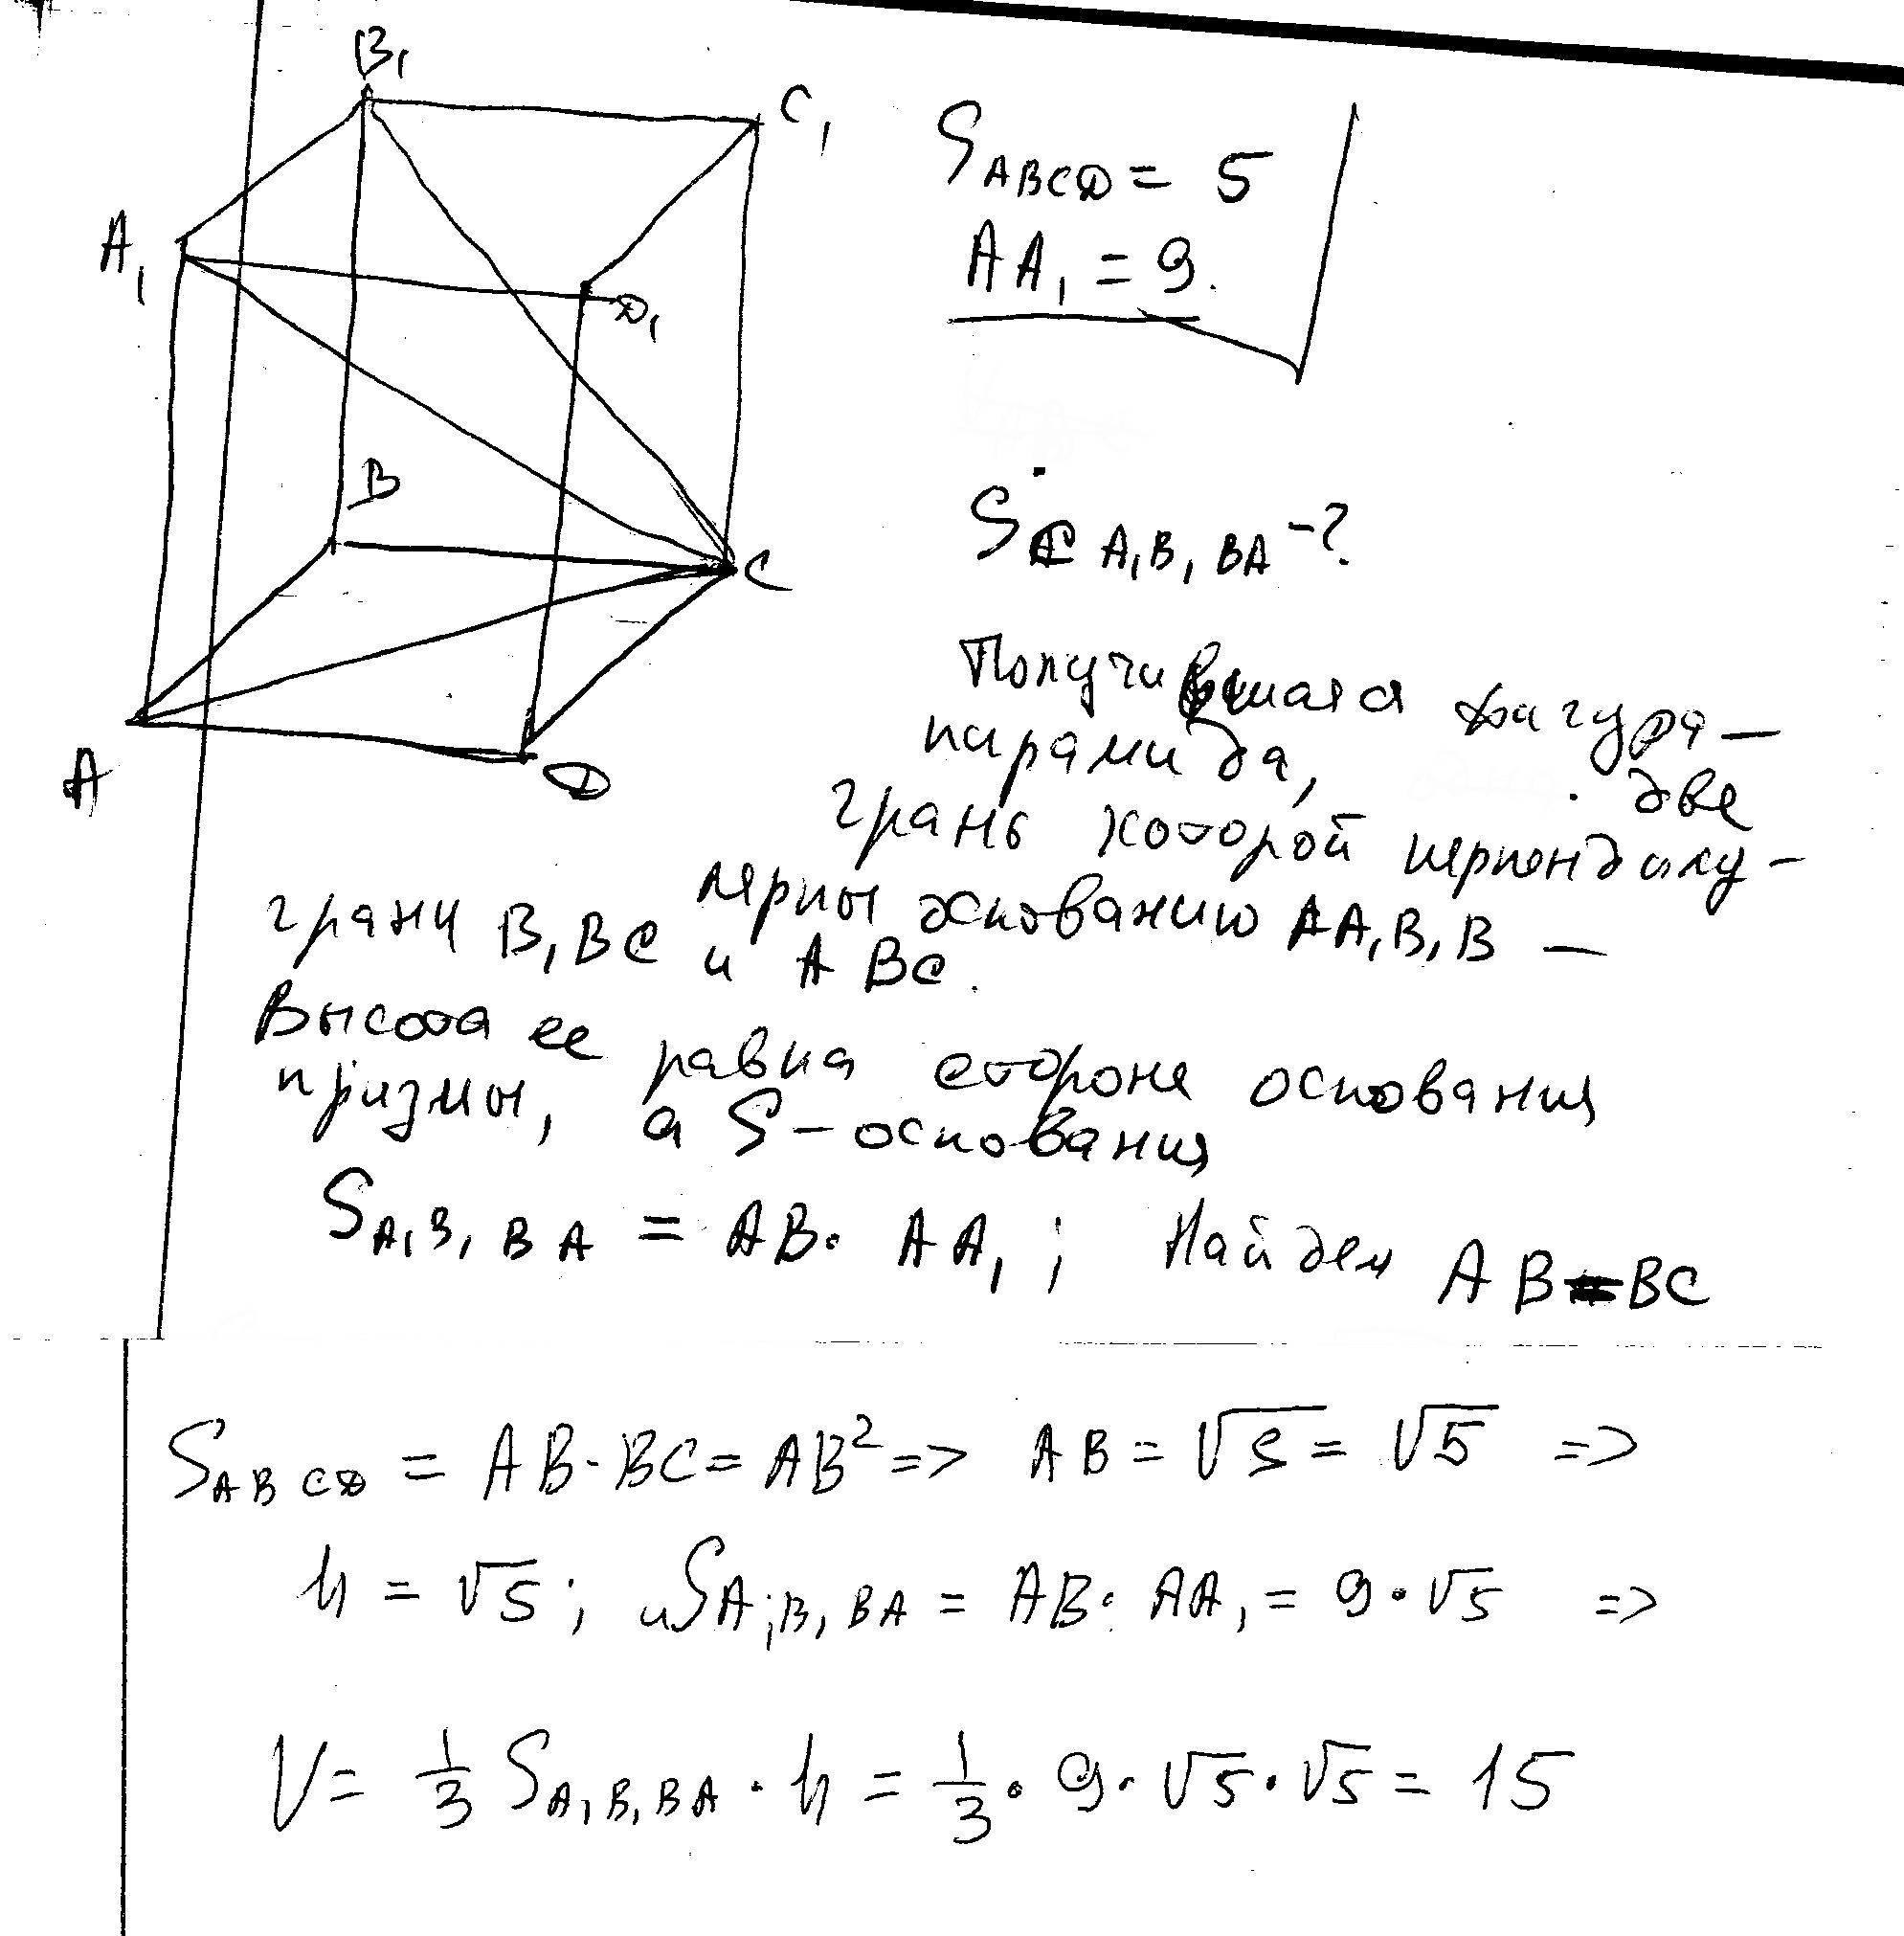 B₁
C₁
A₁
D₁
B
C
A
D
S ABCD = 5
AA₁ = 9.
S C A₁B₁BA -?
Получившаяся фигура —
пирамида, две
грань которой перпендику-
лярны основанию AA₁B₁B —
грани B₁BC и ABC.
Высота ее равна стороне основания
призмы, а S - основания
S A₁B₁BA = AB · AA₁; Найдем AB = BC
S ABCD = AB · BC = AB² => AB = √S = √5 =>
h = √5; и S A₁B₁BA = AB · AA₁ = 9 · √5 =>
V = 1/3 S A₁B₁BA · h = 1/3 · 9 · √5 · √5 = 15